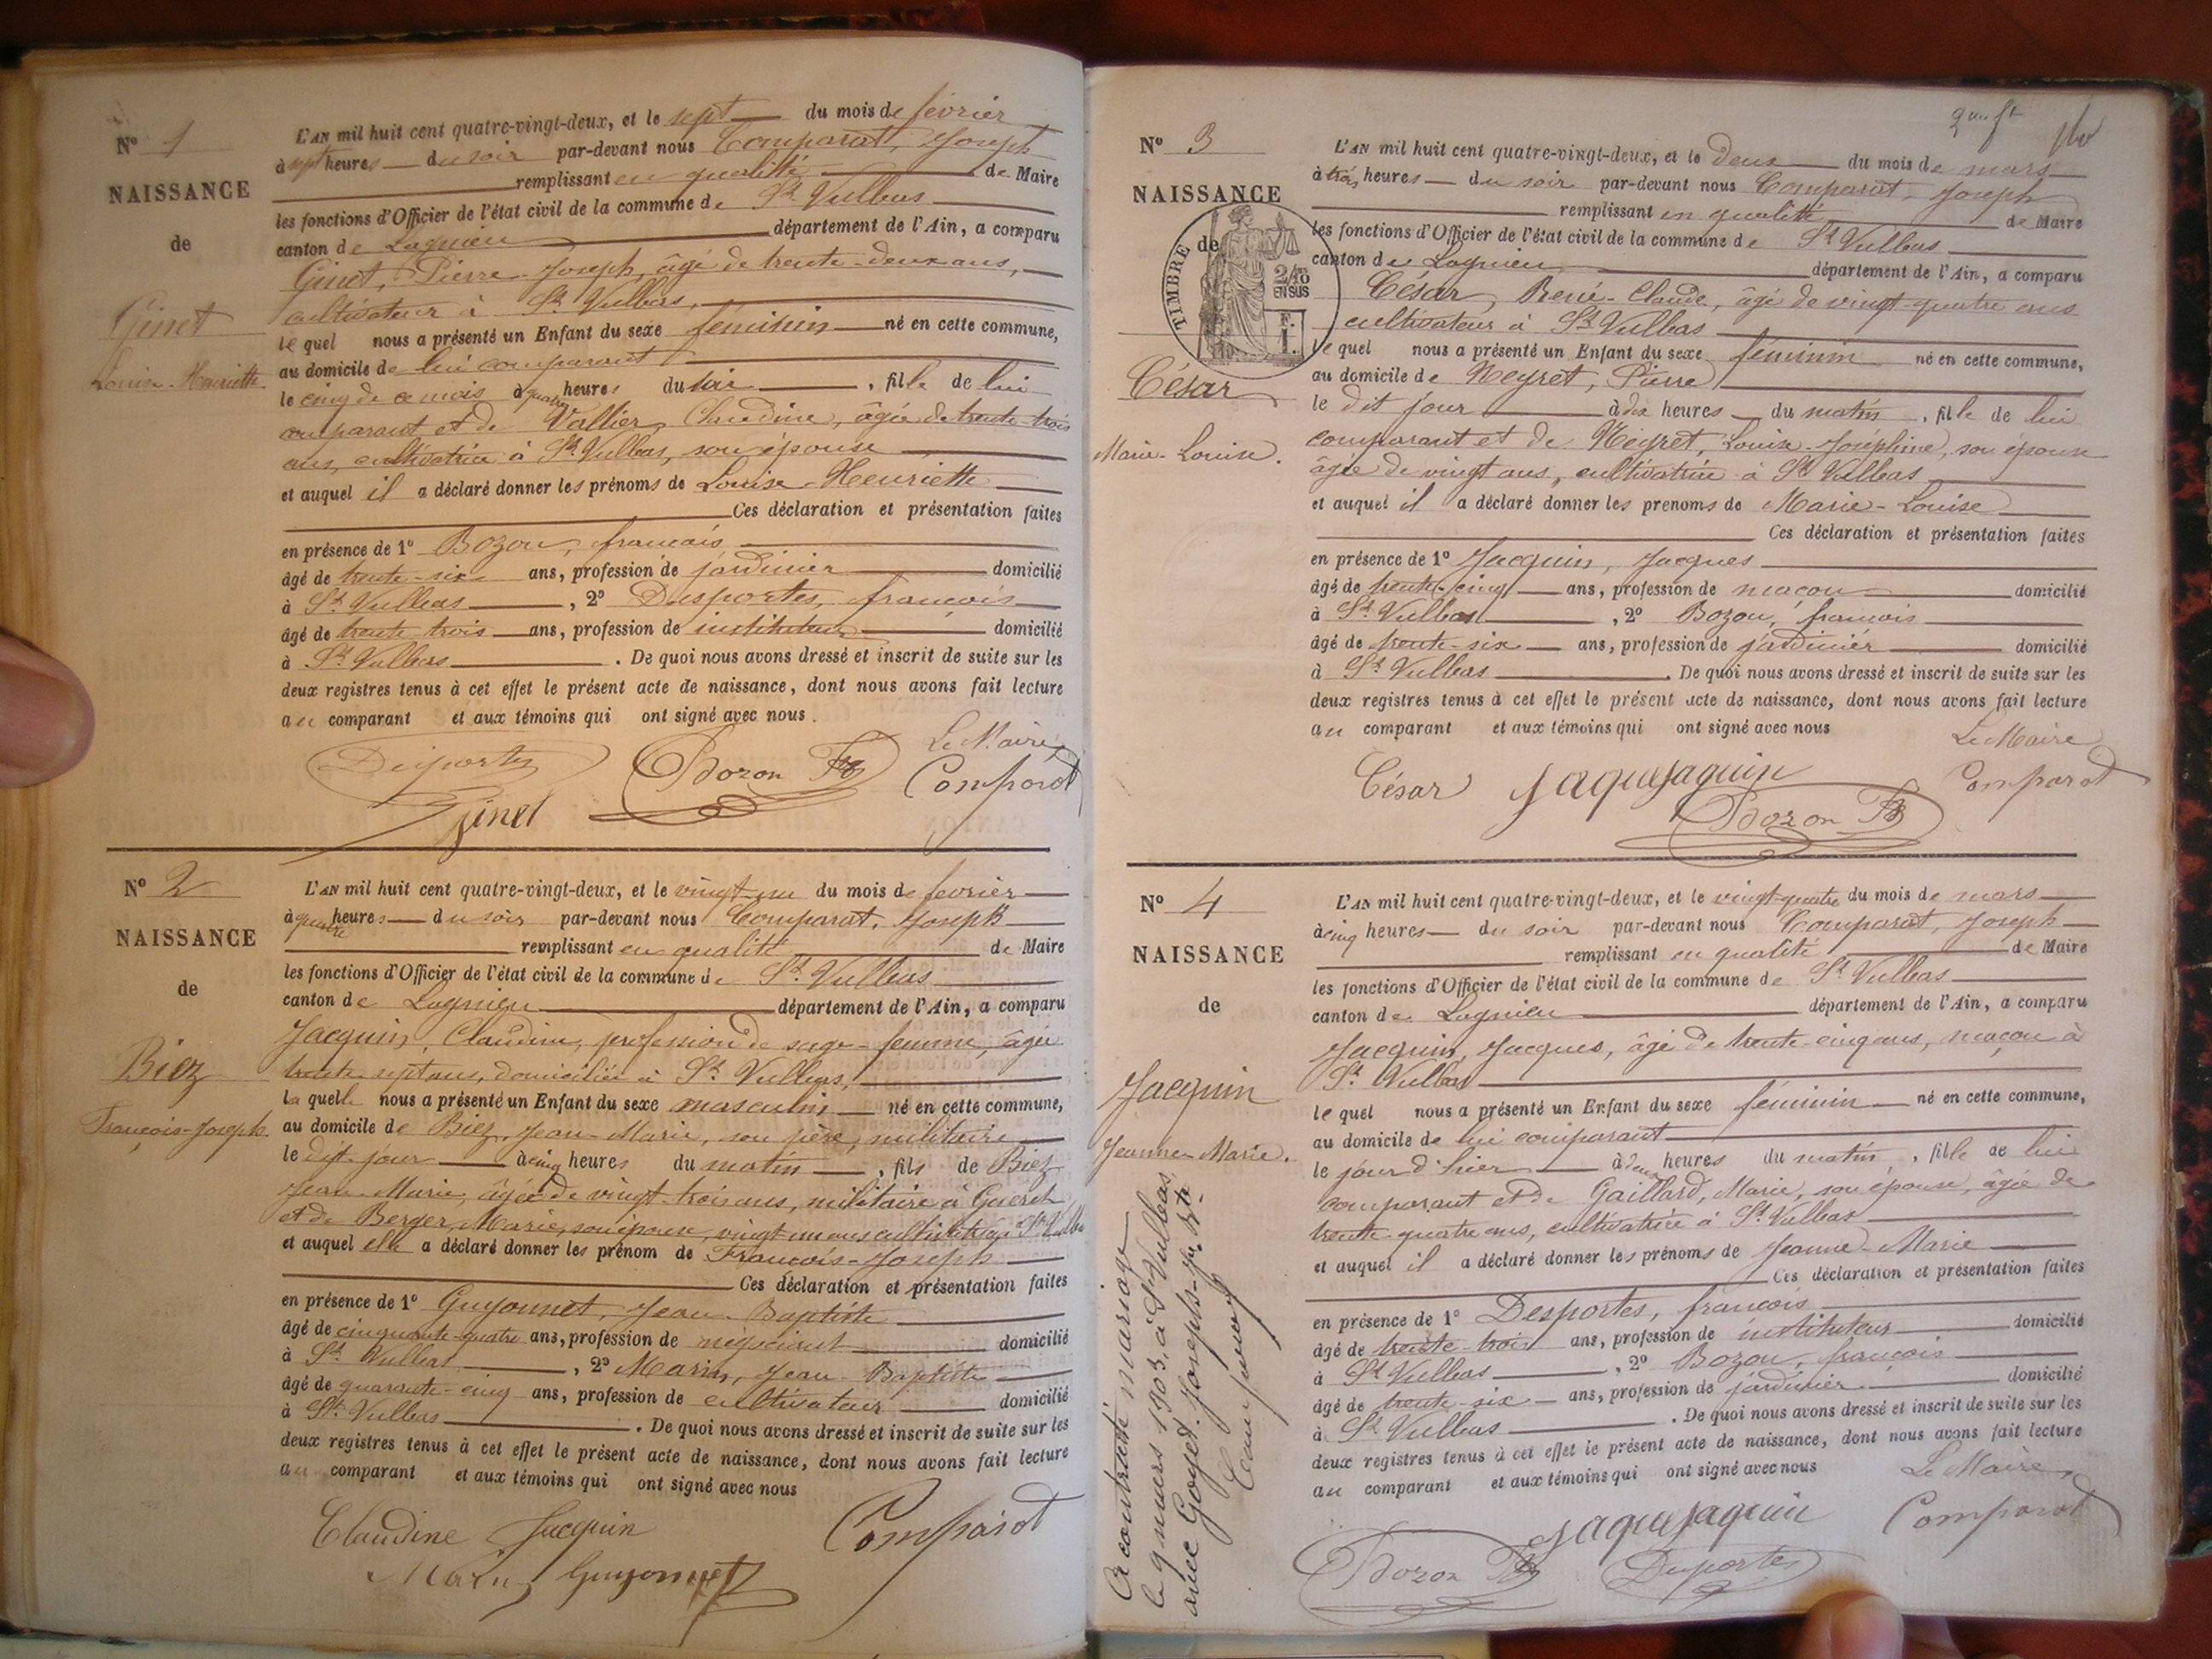 Nº 1
NAISSANCE
de
Ginet
Louise-Henriette.
L'AN mil huit cent quatre-vingt-deux, et le sept du mois de février
à sept heures du soir par-devant nous Comparat, Joseph
remplissant en qualité de Maire
les fonctions d'Officier de l'état civil de la commune de St Vulbas
canton de Lagnieu département de l'Ain, a comparu
Ginet, Pierre-Joseph, âgé de trente-deux ans,
cultivateur à St Vulbas,
lequel nous a présenté un Enfant du sexe féminin né en cette commune,
au domicile de lui comparant
le cinq de ce mois à quatre heures du soir, fille de lui
comparant et de Vallier, Claudine, âgée de trente-trois
ans, cultivatrice à St Vulbas, son épouse
et auquel il a déclaré donner les prénoms de Louise-Henriette
Ces déclaration et présentation faites
en présence de 1º Bozon, françois
âgé de trente-six ans, profession de jardinier domicilié
à St Vulbas, 2º Desportes, françois
âgé de trente trois ans, profession de instituteur domicilié
à St Vulbas. De quoi nous avons dressé et inscrit de suite sur les
deux registres tenus à cet effet le présent acte de naissance, dont nous avons fait lecture
au comparant et aux témoins qui ont signé avec nous.
Le Maire
Desportes Bozon Comparat
Ginet
Nº 2
NAISSANCE
de
Biez
François-Joseph.
L'AN mil huit cent quatre-vingt-deux, et le vingt-un du mois de février
à quatre heures du soir par-devant nous Comparat, Joseph
remplissant en qualité de Maire
les fonctions d'Officier de l'état civil de la commune de St Vulbas
canton de Lagnieu département de l'Ain, a comparu
Jacquin, Claudine, profession de sage-femme, âgée
trente-sept ans, domiciliée à St Vulbas,
laquelle nous a présenté un Enfant du sexe masculin né en cette commune,
au domicile de Biez, Jean-Marie, son père, militaire
le dit jour à cinq heures du matin, fils de Biez
Jean-Marie, âgée de vingt-trois ans, militaire à Guéret
et de Berger, Marie, son épouse, vingt-un ans cultivatrice à St Vulbas
et auquel elle a déclaré donner les prénom de François-Joseph
Ces déclaration et présentation faites
en présence de 1º Guyonnet, Jean-Baptiste
âgé de cinquante-quatre ans, profession de négociant domicilié
à St Vulbas, 2º Marin, Jean-Baptiste
âgé de quarante-cinq ans, profession de cultivateur domicilié
à St Vulbas. De quoi nous avons dressé et inscrit de suite sur les
deux registres tenus à cet effet le présent acte de naissance, dont nous avons fait lecture
au comparant et aux témoins qui ont signé avec nous
Claudine Jacquin Comparat
Marin Guyonnet
Nº 3
NAISSANCE
de
TIMBRE
2/10
EN SUS
César
Marie-Louise.
L'AN mil huit cent quatre-vingt-deux, et le deux du mois de mars
à trois heures du soir par-devant nous Comparat, Joseph
remplissant en qualité de Maire
les fonctions d'Officier de l'état civil de la commune de St Vulbas
canton de Lagnieu département de l'Ain, a comparu
César, René-Claude, âgé de vingt-quatre ans
cultivateur à St Vulbas
lequel nous a présenté un Enfant du sexe féminin né en cette commune,
au domicile de Neyret, Pierre
le dit jour à dix heures du matin, fille de lui
comparant et de Neyret, Louise-Joséphine, son épouse
âgée de vingt ans, cultivatrice à St Vulbas
et auquel il a déclaré donner les prenoms de Marie-Louise
Ces déclaration et présentation faites
en présence de 1º Jacquin, Jacques
âgé de trente-cinq ans, profession de maçon domicilié
à St Vulbas, 2º Bozon, françois
âgé de trente-six ans, profession de jardinier domicilié
à St Vulbas. De quoi nous avons dressé et inscrit de suite sur les
deux registres tenus à cet effet le présent acte de naissance, dont nous avons fait lecture
au comparant et aux témoins qui ont signé avec nous
Le Maire
César Jaquejaquin Comparat
Bozon
Nº 4
NAISSANCE
de
Jacquin
Jeanne-Marie.
A contracté mariage
le 9 mars 1903, à St Vulbas,
avec Goyet Joseph-
L'AN mil huit cent quatre-vingt-deux, et le vingt-quatre du mois de mars
à cinq heures du soir par-devant nous Comparat, Joseph
remplissant en qualité de Maire
les fonctions d'Officier de l'état civil de la commune de St Vulbas
canton de Lagnieu département de l'Ain, a comparu
Jacquin, Jacques, âgé de trente-cinq ans, maçon à
St Vulbas
lequel nous a présenté un Enfant du sexe féminin né en cette commune,
au domicile de lui comparant
le jour d'hier à deux heures du matin, fille de lui
comparant et de Gaillard, Marie, son épouse, âgée de
trente-quatre ans, cultivatrice à St Vulbas
et auquel il a déclaré donner les prénoms de Jeanne-Marie
Ces déclaration et présentation faites
en présence de 1º Desportes, françois
âgé de trente-trois ans, profession de instituteur domicilié
à St Vulbas, 2º Bozon, françois
âgé de trente-six ans, profession de jardinier domicilié
à St Vulbas. De quoi nous avons dressé et inscrit de suite sur les
deux registres tenus à cet effet le présent acte de naissance, dont nous avons fait lecture
au comparant et aux témoins qui ont signé avec nous
Le Maire
Jaquejaquin Comparat
Bozon Desportes